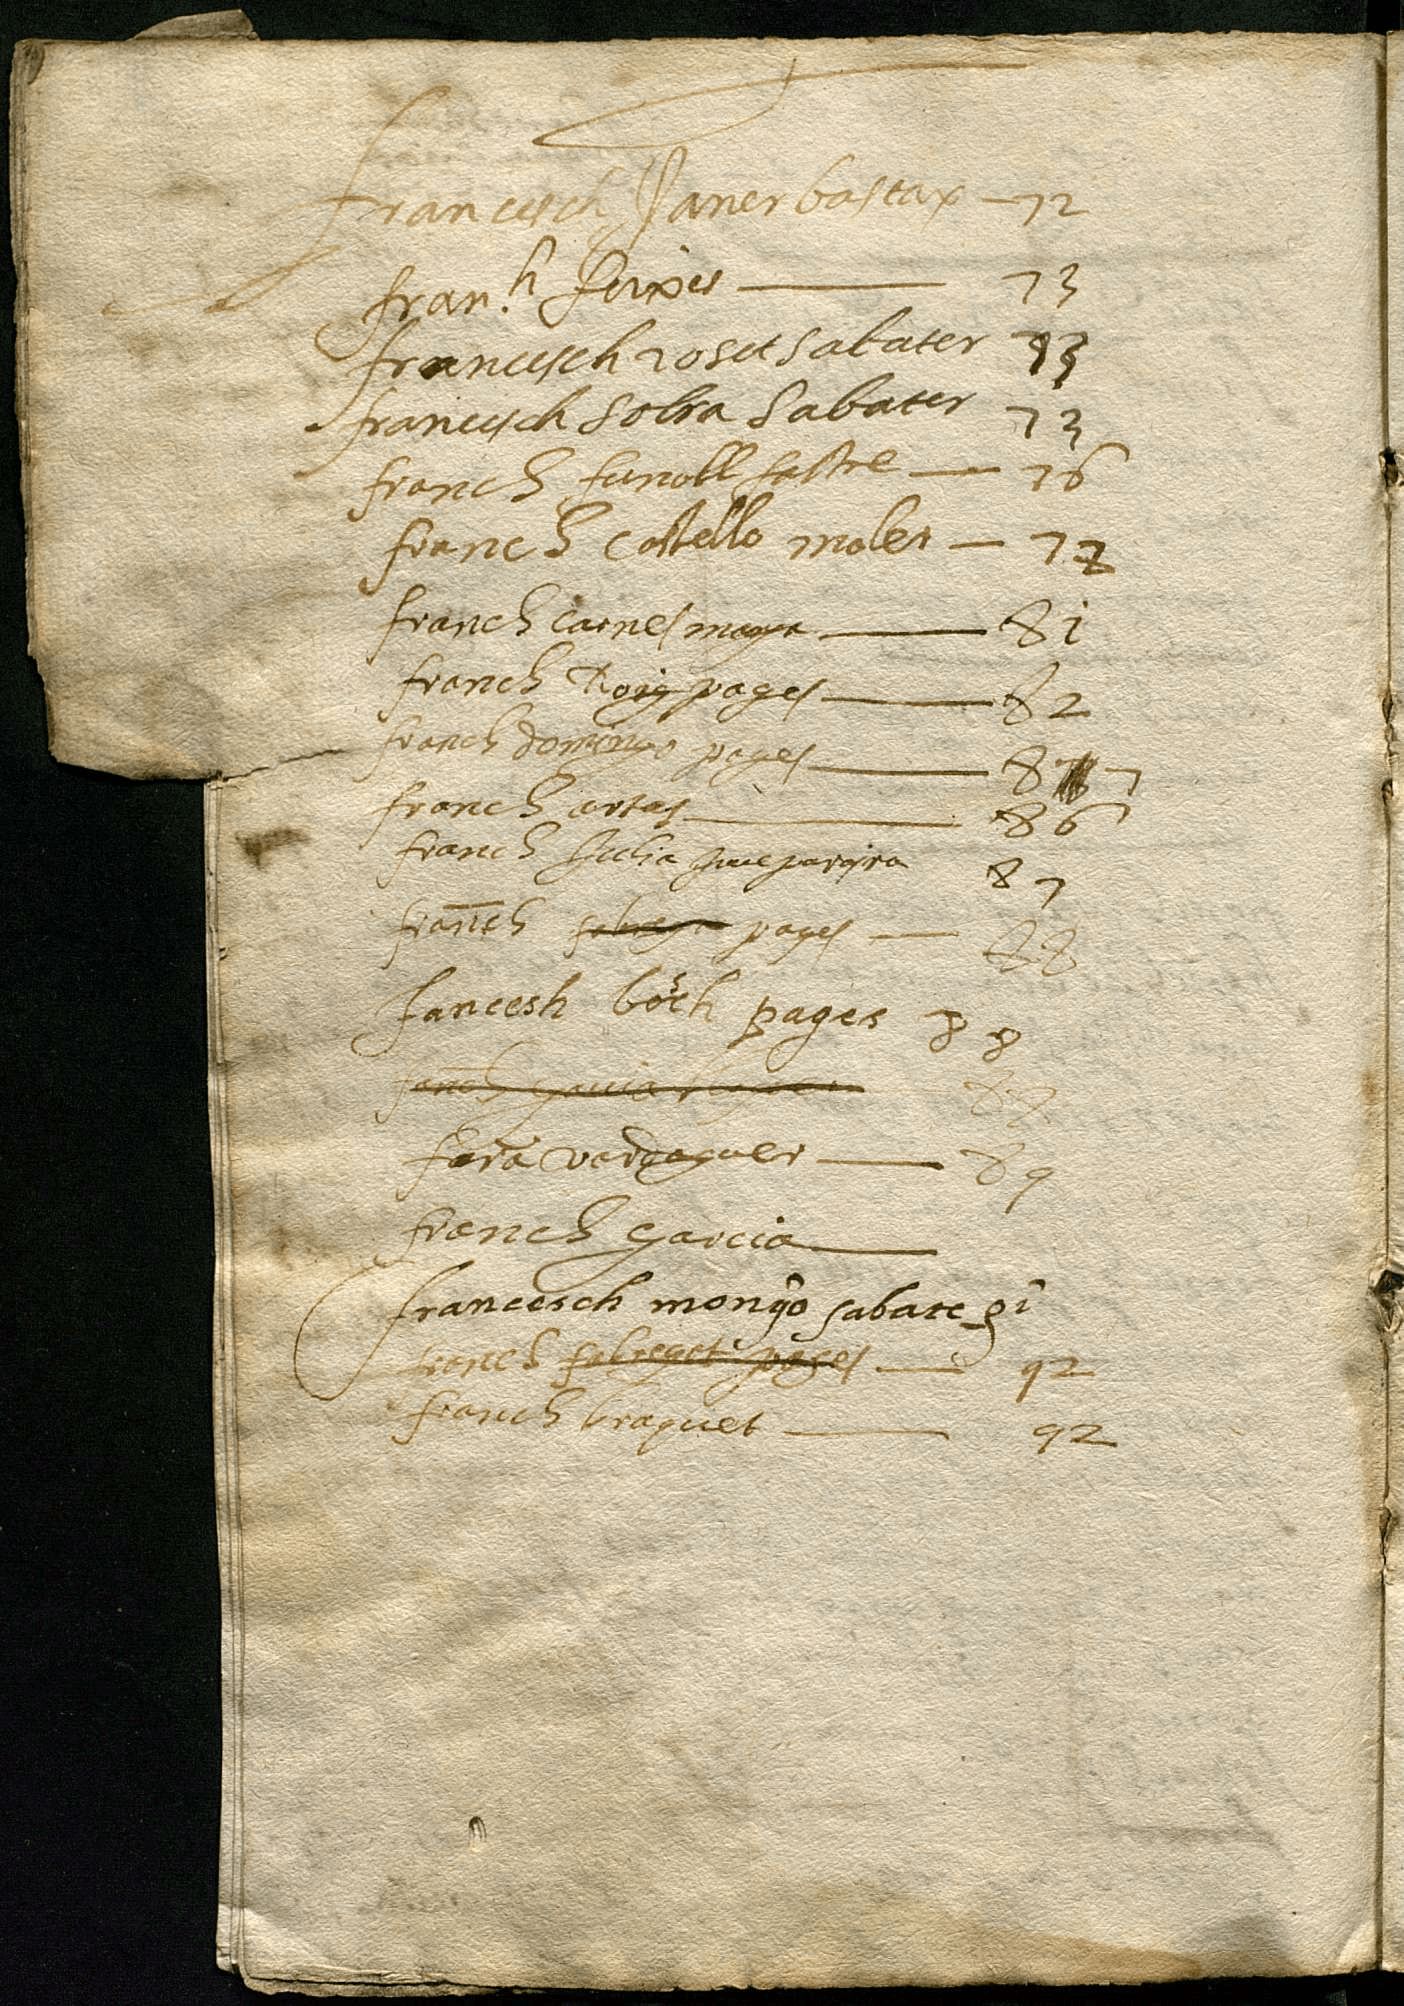 francesch Janer bastax — 72
fran.h Peixes — 73
francesch roset sabater 73
francesch Solra Sabater 73
franch funoll sastre — 76
franch Castello moler — 78
franch carnes — 81
franch Roig pages — 82
franch domingo pages — 87
franch artas — 86
franch Julia 87
franch pages — 88
francesh bosch pages 88
franch garcia
fara verdaguer — 89
franch garcia —
francesch monyo sabate 91
franch fabregat pages — 92
franch braquet — 92